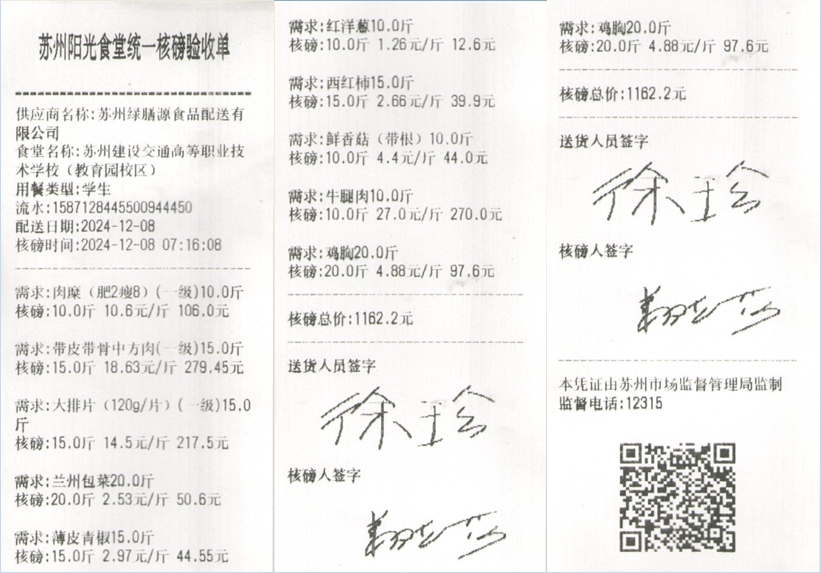 苏州阳光食堂统一核磅验收单
供应商名称:苏州绿膳源食品配送有
限公司
食堂名称:苏州建设交通高等职业技
术学校（教育园校区）
用餐类型:学生
流水:1587128445500944450
配送日期:2024-12-08
核磅时间:2024-12-08 07:16:08
需求:肉糜（肥2瘦8）(一级)10.0斤
核磅:10.0斤 10.6元/斤 106.0元
需求:带皮带骨中方肉(一级)15.0斤
核磅:15.0斤 18.63元/斤 279.45元
需求:大排片（120g/片）(一级)15.0
斤
核磅:15.0斤 14.5元/斤 217.5元
需求:兰州包菜20.0斤
核磅:20.0斤 2.53元/斤 50.6元
需求:薄皮青椒15.0斤
核磅:15.0斤 2.97元/斤 44.55元
需求:红洋葱10.0斤
核磅:10.0斤 1.26元/斤 12.6元
需求:西红柿15.0斤
核磅:15.0斤 2.66元/斤 39.9元
需求:鲜香菇（带根）10.0斤
核磅:10.0斤 4.4元/斤 44.0元
需求:牛腿肉10.0斤
核磅:10.0斤 27.0元/斤 270.0元
需求:鸡胸20.0斤
核磅:20.0斤 4.88元/斤 97.6元
核磅总价:1162.2元
送货人员签字
核磅人签字
需求:鸡胸20.0斤
核磅:20.0斤 4.88元/斤 97.6元
核磅总价:1162.2元
送货人员签字
核磅人签字
本凭证由苏州市场监督管理局监制
监督电话:12315